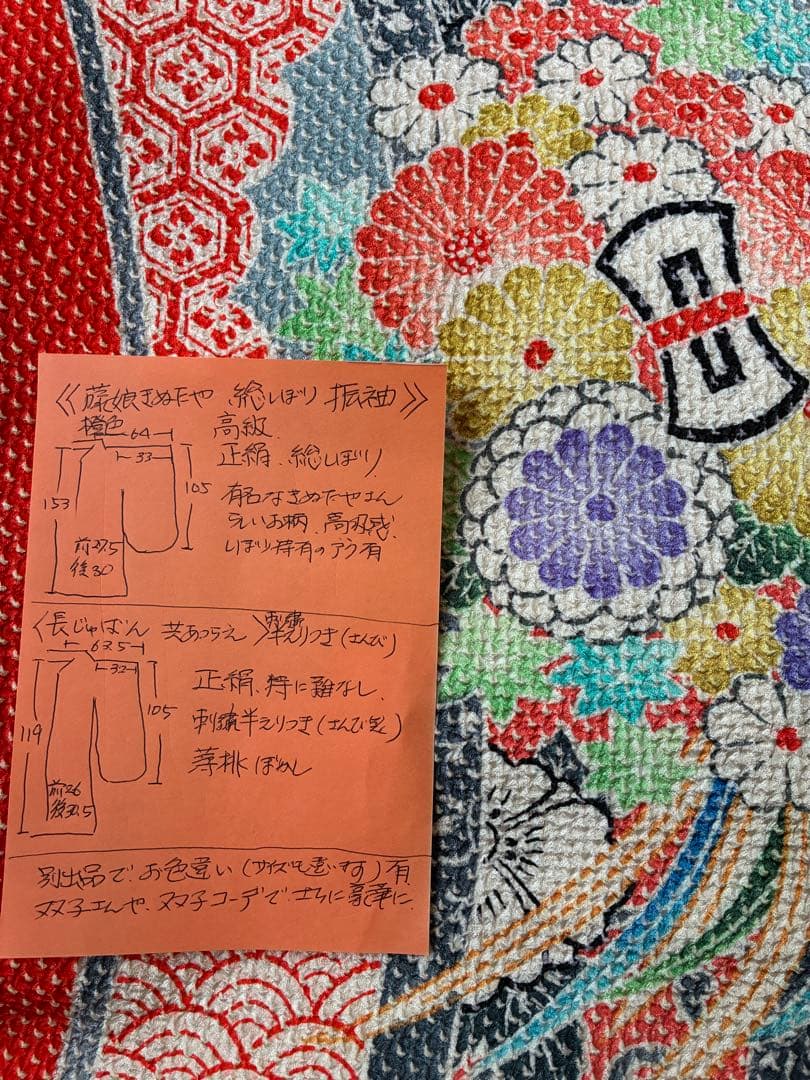 《藤娘きぬたや 総しぼり 振袖》
橙色
64
33
153
105
前27.5
後30
高級
正絹、総しぼり
有名なきぬたやさん
えいお柄、高級感、
しぼり特有のアラ有
〈長じゅばん 共あつらえ〉刺繍半えりつき(さんび)
63.5
32
119
105
前26
後31.5
正絹、特に難なし、
刺繍半えりつき(さんび)
薄桃ぼかし
別出品で、お色違い(サイズも違います)有
双子さんや、双子コーデで、さらに豪華に